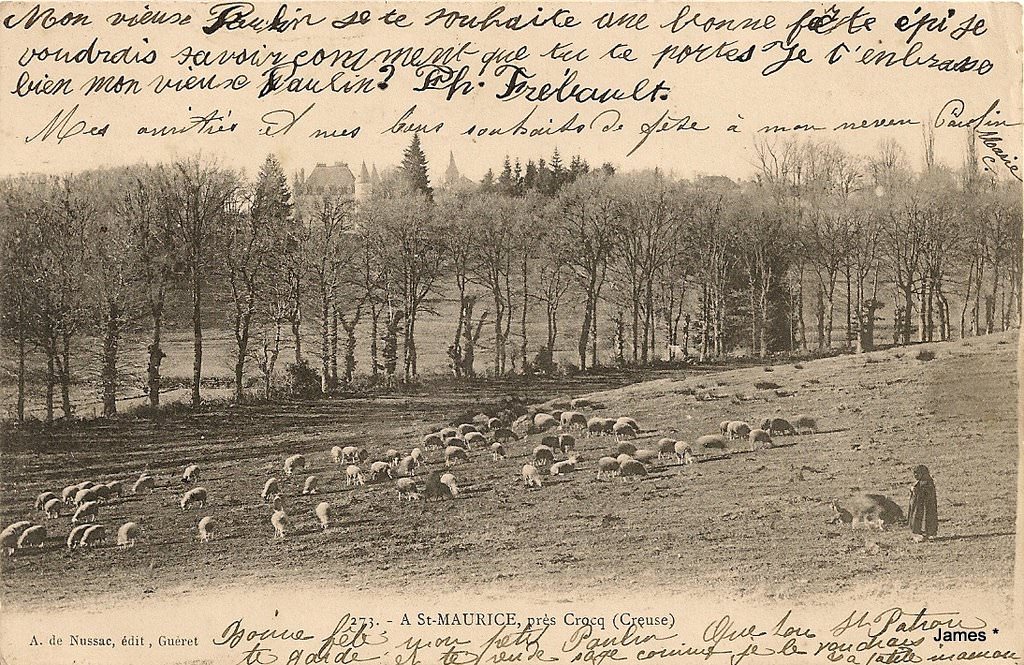 Mon vieux Paulin je te souhaite une bonne fête épi je
voudrais savoir comment que tu te portes Je t'enbrasse
bien mon vieux Paulin? Ph. Frébault.
Mes amitiés et mes bons souhaits de fête à mon neveu Paulin
Marie
C.
273. - A St-MAURICE, près Crocq (Creuse)
A. de Nussac, édit, Guéret
Bonne fête mon petit Paulin Que ton St Patron
te garde et te rende sage comme je le voudrais
Ta petite maman
James *